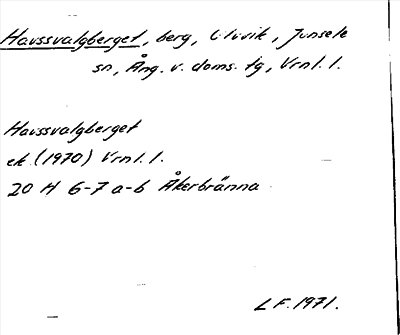 Haussvalgberget, berg, Ulvvik, Junsele
sn, Ång. v. doms. tg, Vrnl. l.
Haussvalgberget
ek. (1970) Vrnl. l.
20 H 6-7 a-b Åkerbränna
LF. 1971.